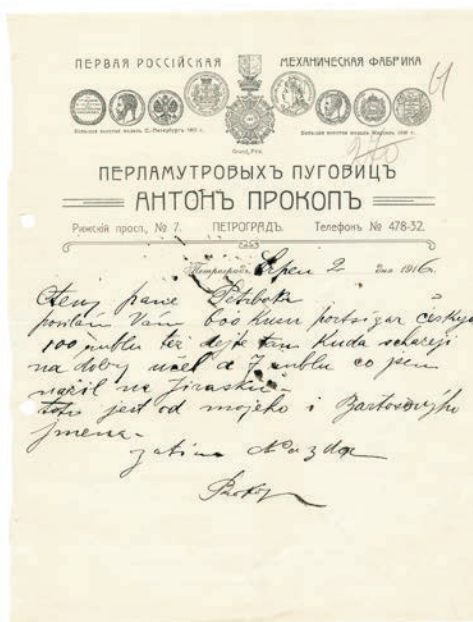 ПЕРВАЯ РОССІЙСКАЯ МЕХАНИЧЕСКАЯ ФАБРИКА
61
Большая золотая медаль С.-Петербургъ
Большая золотая медаль
Grand Prix
270
ПЕРЛАМУТРОВЫХЪ ПУГОВИЦЪ
АНТОНЪ ПРОКОПЪ
Рижскій просп., № 7. ПЕТРОГРАДЪ. Телефонъ № 478-32.
Петроградъ, Srpen 2 дня 1916 г.
Cteny pane
posilám Vám 600 kusu portsigar
100 rublu též dejte tam kuda
na dobry učel a 7 rublu co jsem
na Jiraska
toto jest od mojeho i Bartosovyho
jmena-
zatim Nazdar
Prokop